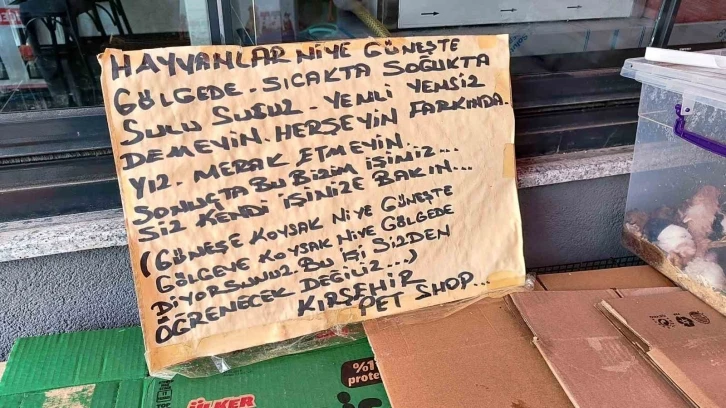 HAYVANLAR NİYE GÜNEŞTE
GÖLGEDE - SICAKTA SOĞUKTA
SULU SUSUZ - YEMLİ YEMSİZ
DEMEYİN. HERŞEYİN FARKINDA.
YIZ. MERAK ETMEYİN.
SONUÇTA BU BİZİM İŞİMİZ...
SİZ KENDİ İŞİNİZE BAKIN...
(GÜNEŞE KOYSAK NİYE GÜNEŞTE
GÖLGEYE KOYSAK NİYE GÖLGEDE
DİYORSUNUZ. BU İŞİ SİZDEN
ÖĞRENECEK DEĞİLİZ...)
KIRŞEHİR
PET SHOP...
ÜLKER